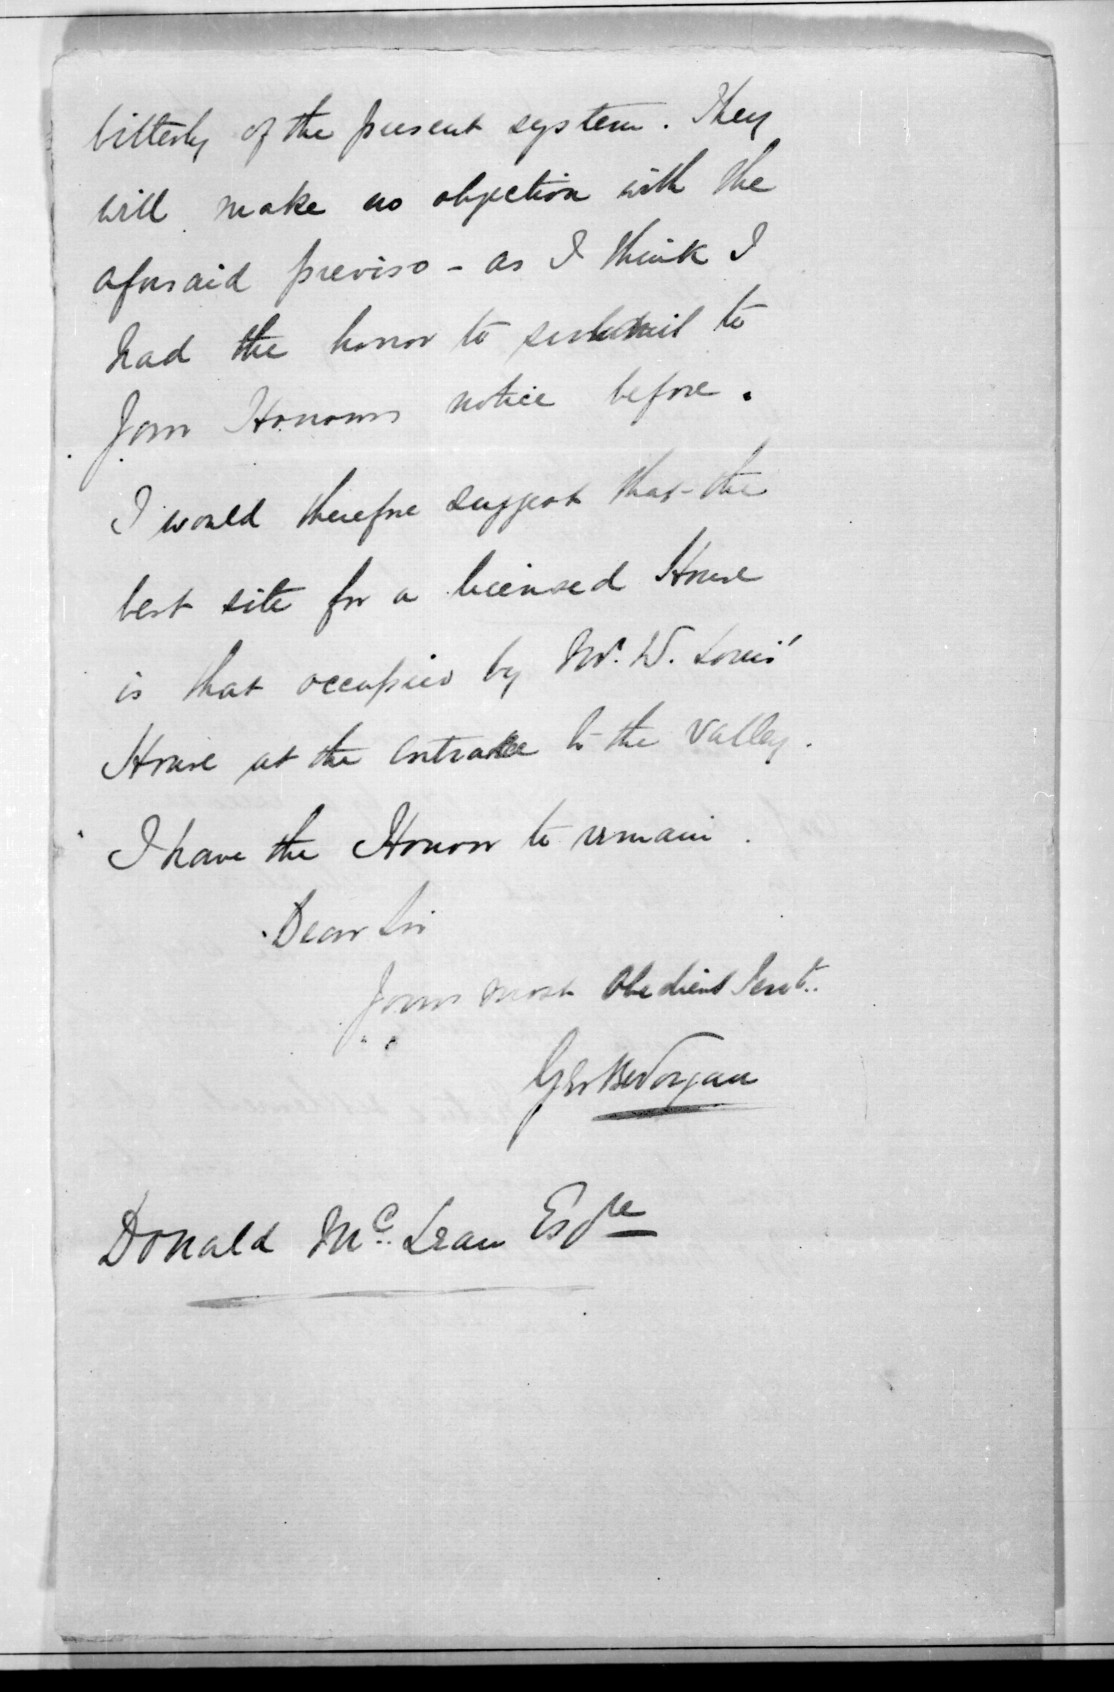 bitterly of the present system. They
will make no objection with the
aforsaid proviso - as I think I
had the honor to submit to
Your Honours notice before.
I would therefore suggest that the
best site for a licensed House
is that occupied by Mr. W. Louis'
House at the entrance to the Valley.
I have the Honor to remain.
Dear Sir
Yours most Obedient Servt..
Donald Mc. Lean Esqre